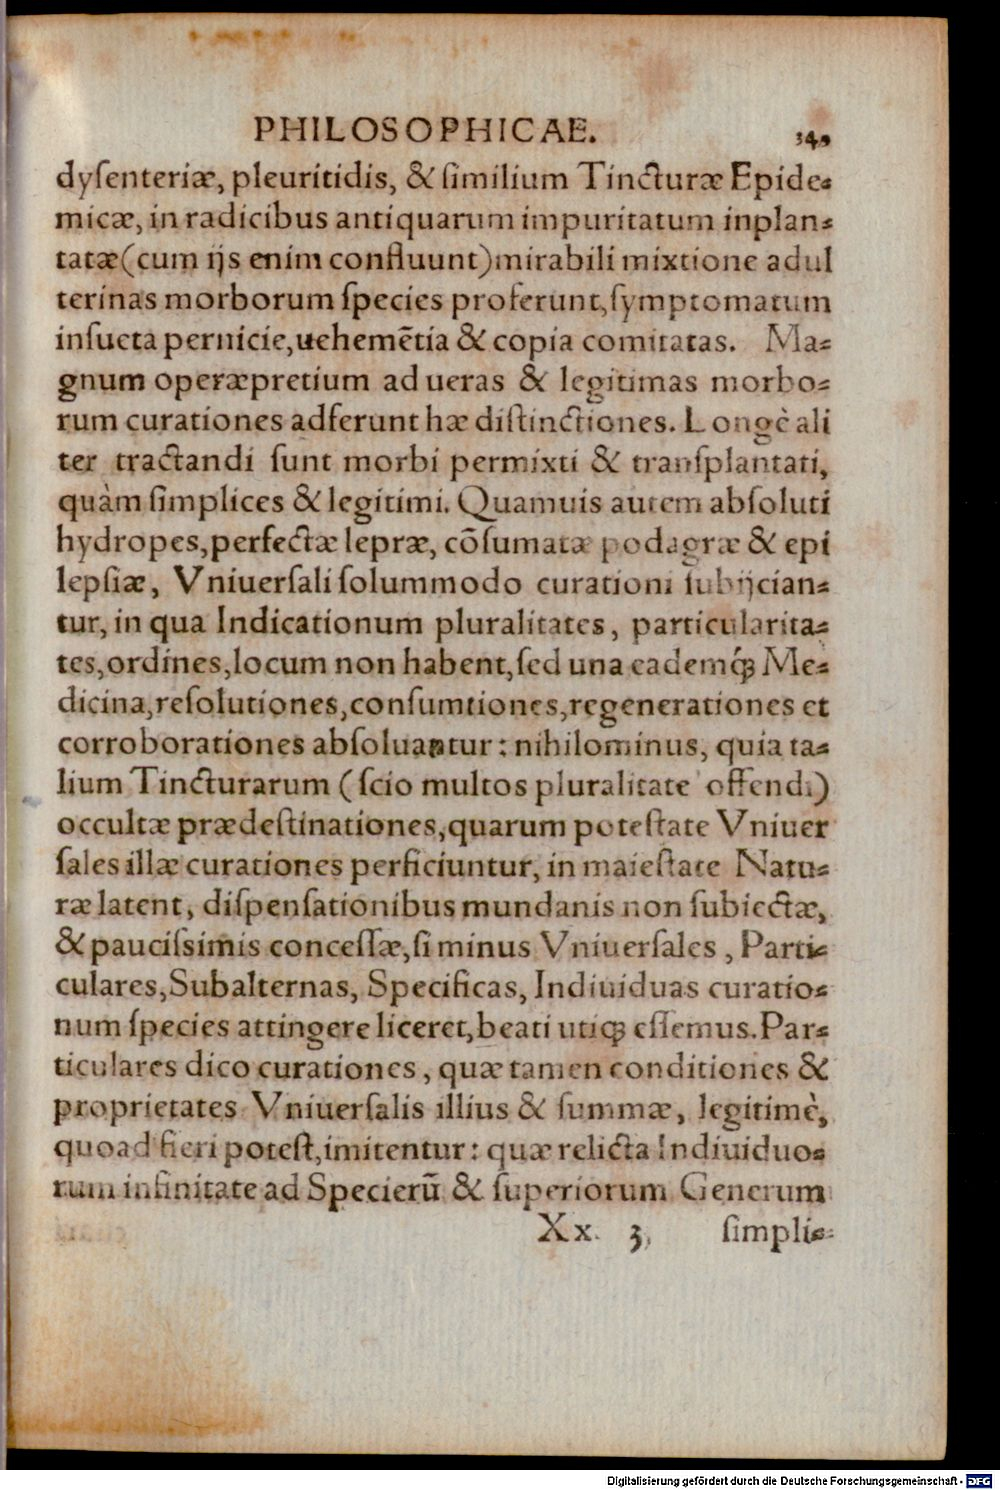 PHILOSOPHICAE. 349
dyſenteriæ, pleuritidis, & ſimilium Tincturæ Epide-
micæ, in radicibus antiquarum impuritatum inplan-
tatæ (cum ijs enim confluunt) mirabili mixtione adul
terinas morborum ſpecies proferunt, ſymptomatum
inſueta pernicie, uehemētia & copia comitatas. Ma-
gnum operæpretium ad ueras & legitimas morbo-
rum curationes adferunt hæ diſtinctiones. Longè ali
ter tractandi ſunt morbi permixti & tranſplantati,
quàm ſimplices & legitimi. Quamuis autem abſoluti
hydropes, perfectæ lepræ, cōſumatæ podagræ & epi
lepſiæ, Vniuerſali ſolummodo curationi ſubijcian-
tur, in qua Indicationum pluralitates, particularita-
tes, ordines, locum non habent, ſed una eademq́ꝫ Me-
dicina, reſolutiones, conſumtiones, regenerationes et
corroborationes abſoluantur: nihilominus, quia ta-
lium Tincturarum (ſcio multos pluralitate offendi)
occultæ prædeſtinationes, quarum poteſtate Vniuer
ſales illæ curationes perficiuntur, in maieſtate Natu-
ræ latent, diſpenſationibus mundanis non ſubiectæ,
& pauciſsimis conceſſæ, ſi minus Vniuerſales, Parti-
culares, Subalternas, Specificas, Indiuiduas curatio-
num ſpecies attingere liceret, beati utiqꝫ eſſemus. Par-
ticulares dico curationes, quæ tamen conditiones &
proprietates Vniuerſalis illius & ſummæ, legitimè,
quoad fieri poteſt, imitentur: quæ relicta Indiuiduo-
rum infinitate ad Specierū & ſuperiorum Generum
Xx 3 ſimpli-
Digitalisierung gefördert durch die Deutsche Forschungsgemeinschaft - DFG